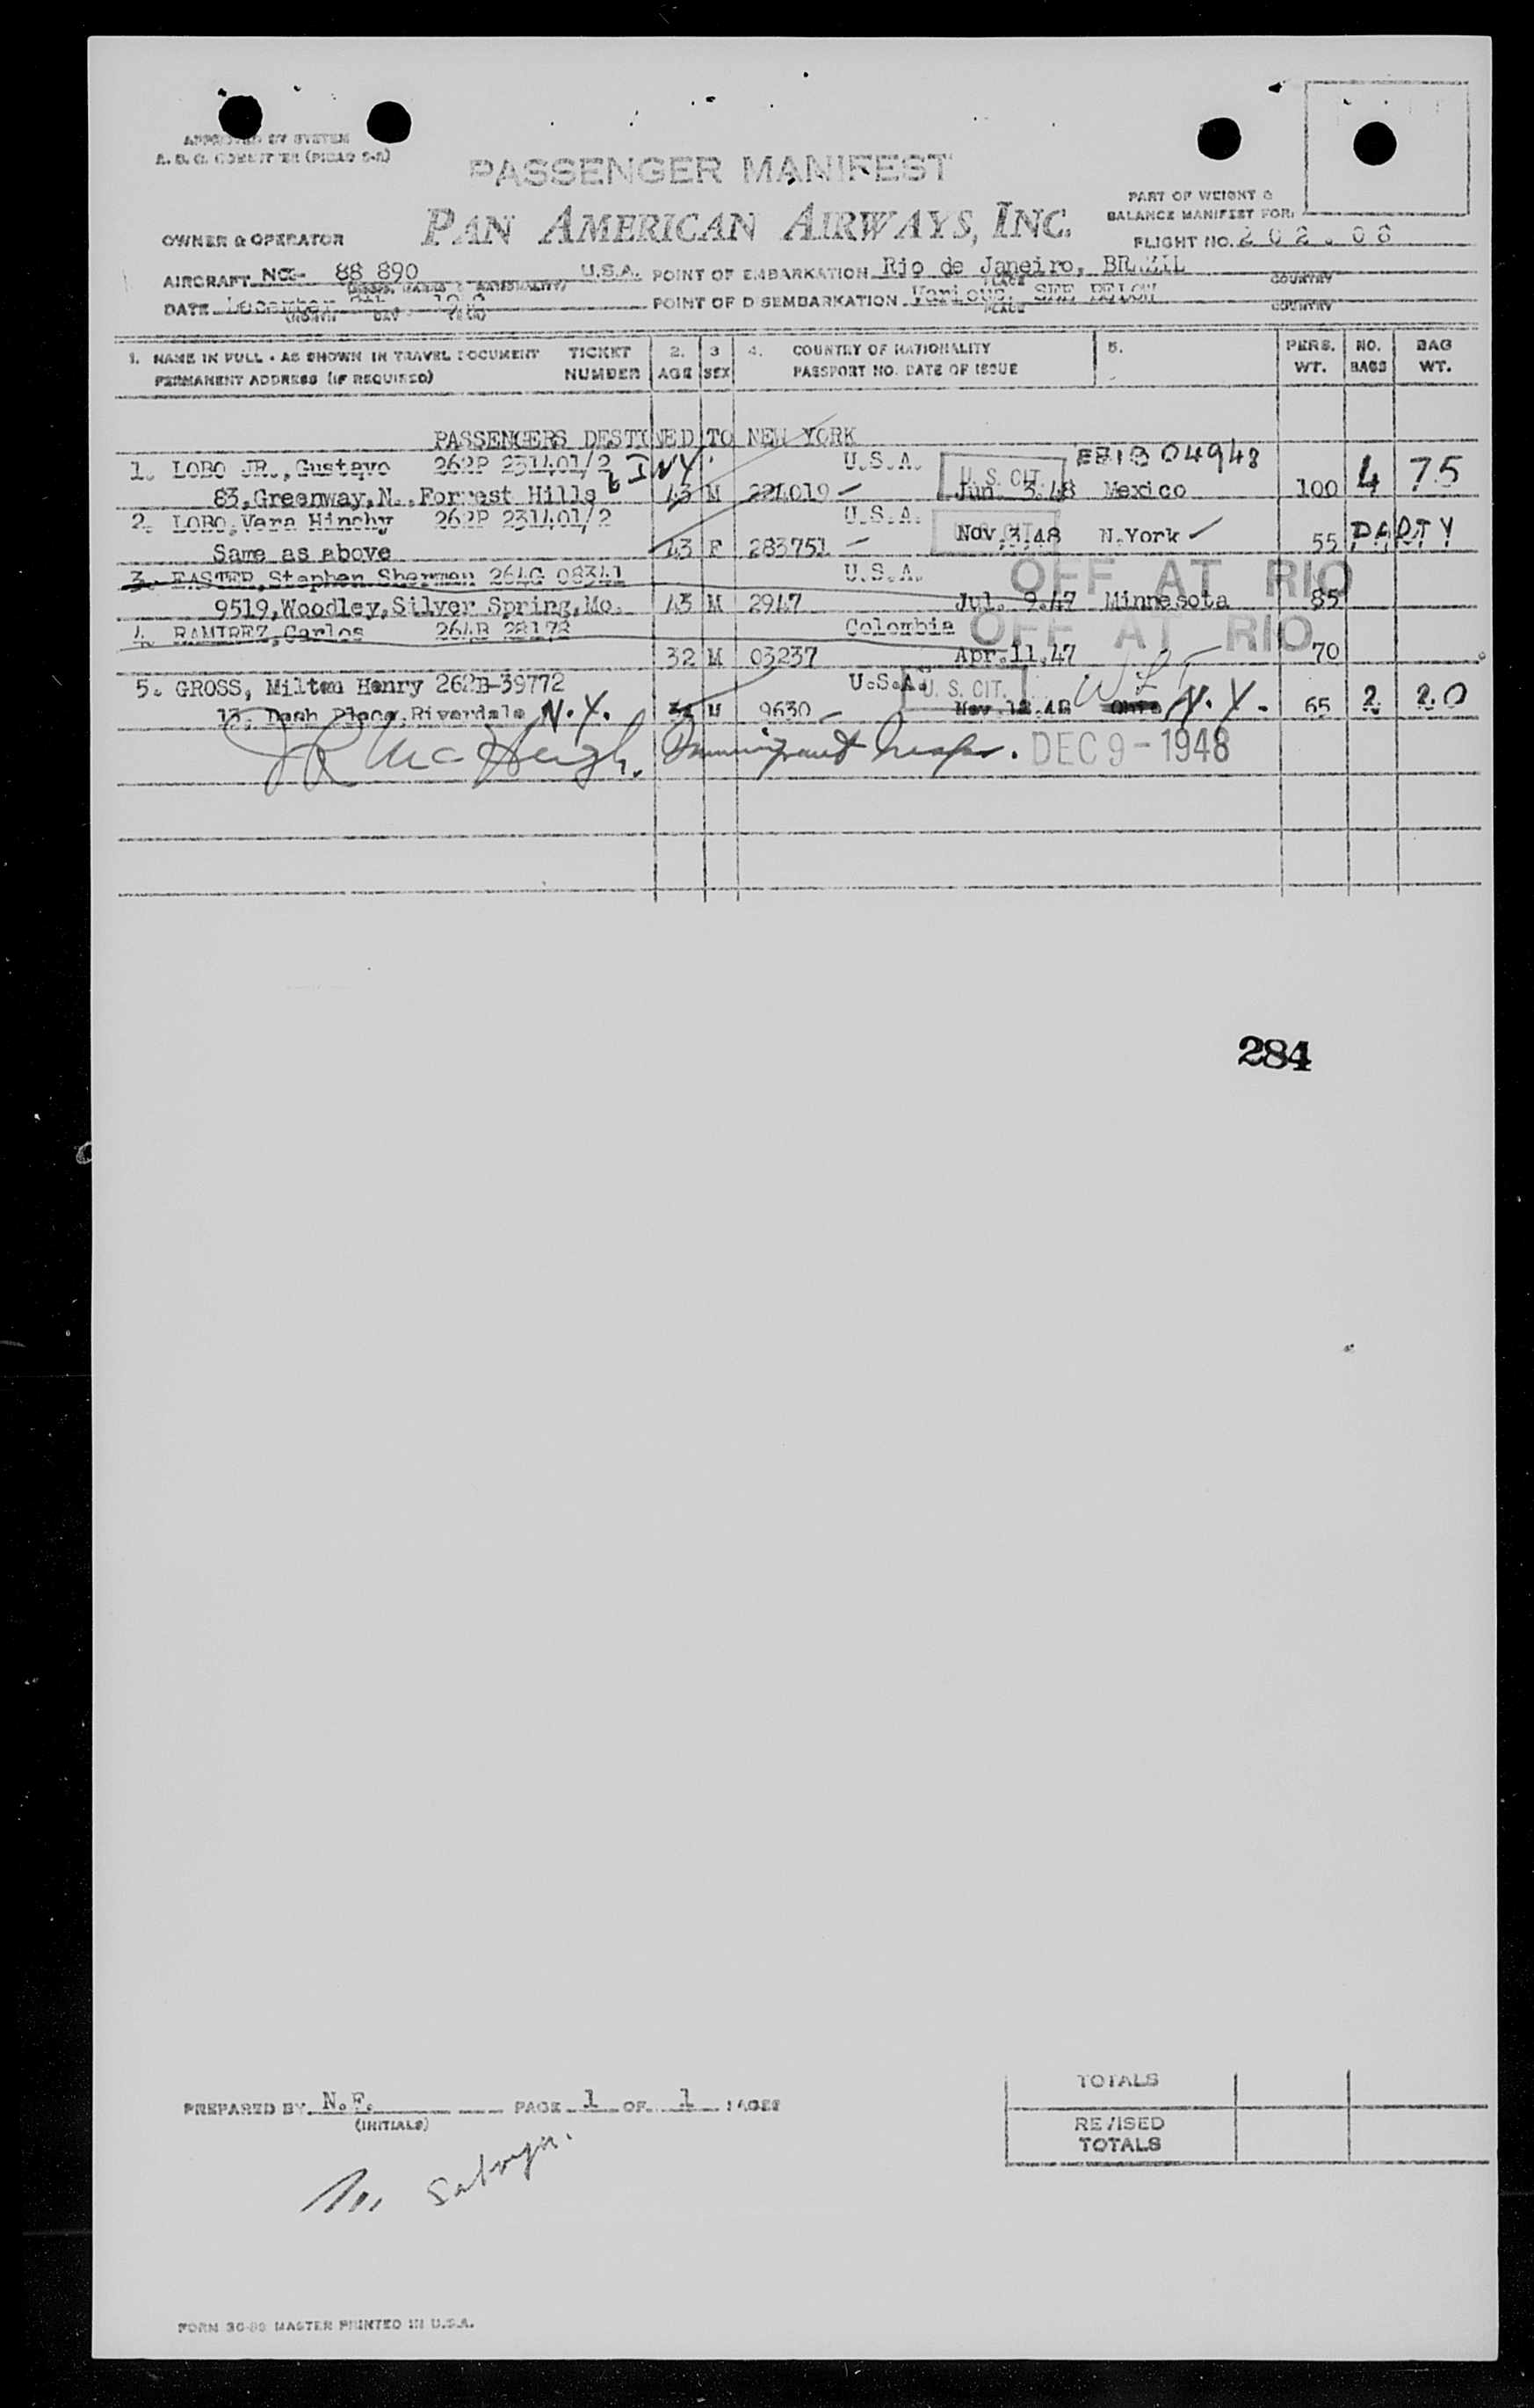 APPROVED BY SYSTEM
PASSENGER MANIFEST
PAN AMERICAN AIRWAYS, INC.
PART OF WEIGHT &
BALANCE MANIFEST FOR:
OWNER & OPERATOR
FLIGHT NO. 202.08
AIRCRAFT NC- 88 890 U.S.A. POINT OF EMBARKATION Rio de Janeiro, BRAZIL
PLACE COUNTRY
DATE December POINT OF DISEMBARKATION Various, SEE BELOW
(MONTH DAY YEAR) PLACE COUNTRY
1. NAME IN FULL - AS SHOWN IN TRAVEL DOCUMENT TICKET 2. 3 4. COUNTRY OF NATIONALITY 5. PERS. NO. BAG
PERMANENT ADDRESS (IF REQUIRED) NUMBER AGE SEX PASSPORT NO. DATE OF ISSUE WT. BAGS WT.
PASSENGERS DESTINED TO NEW YORK
1. LOBO JR., Gustavo 262P 231401/2 U.S.A. U. S. CIT. 04948
83, Greenway, N., Forrest Hills NY. 43 M 224019 Jun 3.48 Mexico 100 4 75
2. LOBO, Vera Hinchy 262P 231401/2 U.S.A.
Same as above 43 F 283751 Nov.3.48 N.York ✓ 55 PARTY
3. EASTER, Stephen Sherman 264G 08341 U.S.A. OFF AT RIO
9519, Woodley, Silver Spring, Mo. 43 M 2947 Jul. 9.47 Minnesota 85
4. RAMIREZ, Carlos 264B 28178 Colombia OFF AT RIO
32 M 03237 Apr.11.47 70
5. GROSS, Milton Henry 262B-39772 U.S.A. U. S. CIT.
13, Dash Place, Riverdale N.Y. M 9630 Nov. 12.48 N.Y. 65 2 20
J R McHeigh, Immigrant Inspr. DEC 9 - 1948
284
TOTALS
PREPARED BY N.F. PAGE 1 OF 1 PAGES
(INITIALS)
REVISED
TOTALS
FORM MASTER PRINTED IN U.S.A.